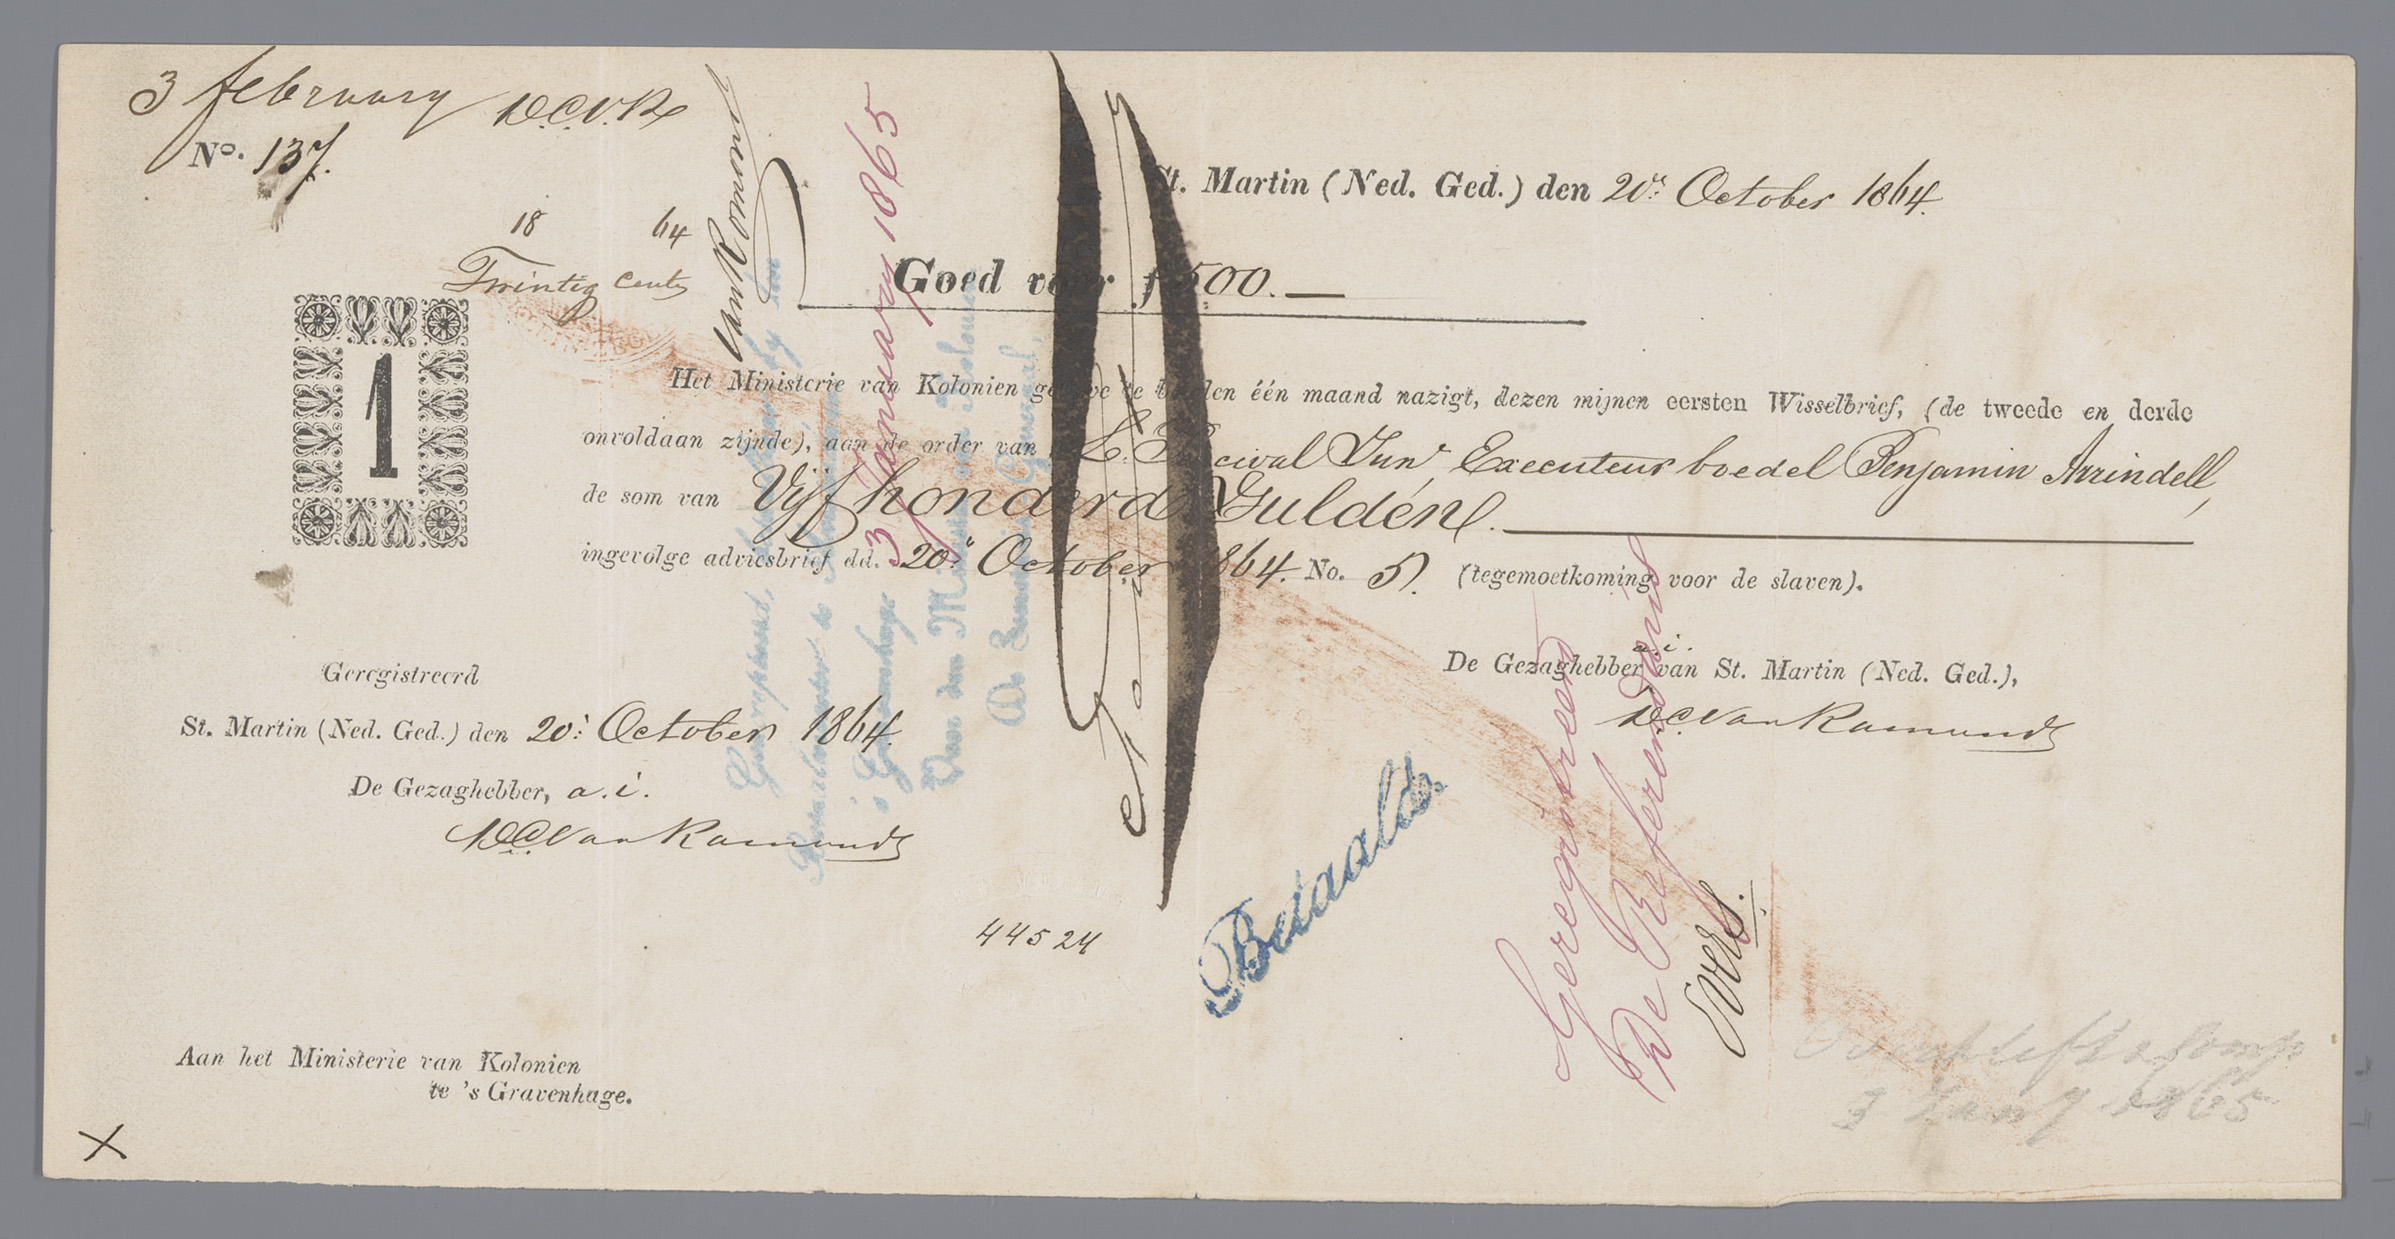 3 february D.C.V.R
No. 137.
St. Martin (Ned. Ged.) den 20n October 1864.
18 64
Twintig Cents
Goed voor f 500.—
1
Het Ministerie van Kolonien gelieve te betalen één maand nazigt, dezen mijnen eersten Wisselbrief, (de tweede en derde
onvoldaan zijnde), aan de order van L. Percival Junr Executeur boedel Benjamin Arrindell,
de som van Vijf honderd Gulden.
ingevolge adviesbrief dd. 20n October 1864. No. 5. (tegemoetkoming voor de slaven).
Geregistreerd
St. Martin (Ned. Ged.) den 20n October 1864.
De Gezaghebber, a.i.
D.C. van Romondt
a.i.
De Gezaghebber van St. Martin (Ned. Ged.),
D.C. van Romondt
44524
Aan het Ministerie van Kolonien
te 's Gravenhage.
X
van Romondt
3 January 1865
Geaccepteerd,
's Gravenhage
Voor den Minister van Kolonien
De Secretaris Generaal,
Betaald.
Geregistreerd
De Referendaris
Evers.
3 Jany 1865